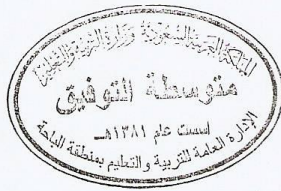 المملكة العربية السعودية وزارة التربية والتعليم
متوسطة التوفيق
اسست عام ١٣٨١هـ
الإدارة العامة للتربية والتعليم بمنطقة الباحة